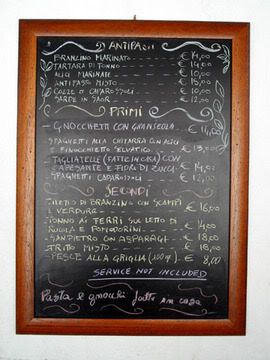 ANTIPASTI
BRANZINO MARINATO --- € 14,00
TARTARA DI TONNO --- € 14,00
ALICI MARINATE --- € 10,00
ANTIPASTO MISTO --- € 15,00
COZZE O CAPAROSSOLI --- € 10,00
SARDE IN SAOR --- € 12,00
PRIMI
- GNOCCHETTI CON GRANSEOLA --- € 14,00
SPAGHETTI ALLA CHITARRA CON ALICI
E FINOCCHIETTO SELVATICO --- € 13,00
TAGLIATELLE (FATTE IN CASA) CON
CAPESANTE E FIORI DI ZUCCA - € 14,00
SPAGHETTI CAPAROSSOLI
SECONDI
FILETTO DI BRANZINO CON SCAMPI
E VERDURA --- € 16,00
TONNO AI FERRI SU LETTO DI
RUCOLA E POMODORINI --- € 14,00
SANPIETRO CON ASPARAGI - € 18,00
FRITTO MISTO --- € 16,00
- PESCE ALLA GRIGLIA (100 gr.) € 8,00
SERVICE NOT INCLUDED
Pasta e gnocchi fatti in casa